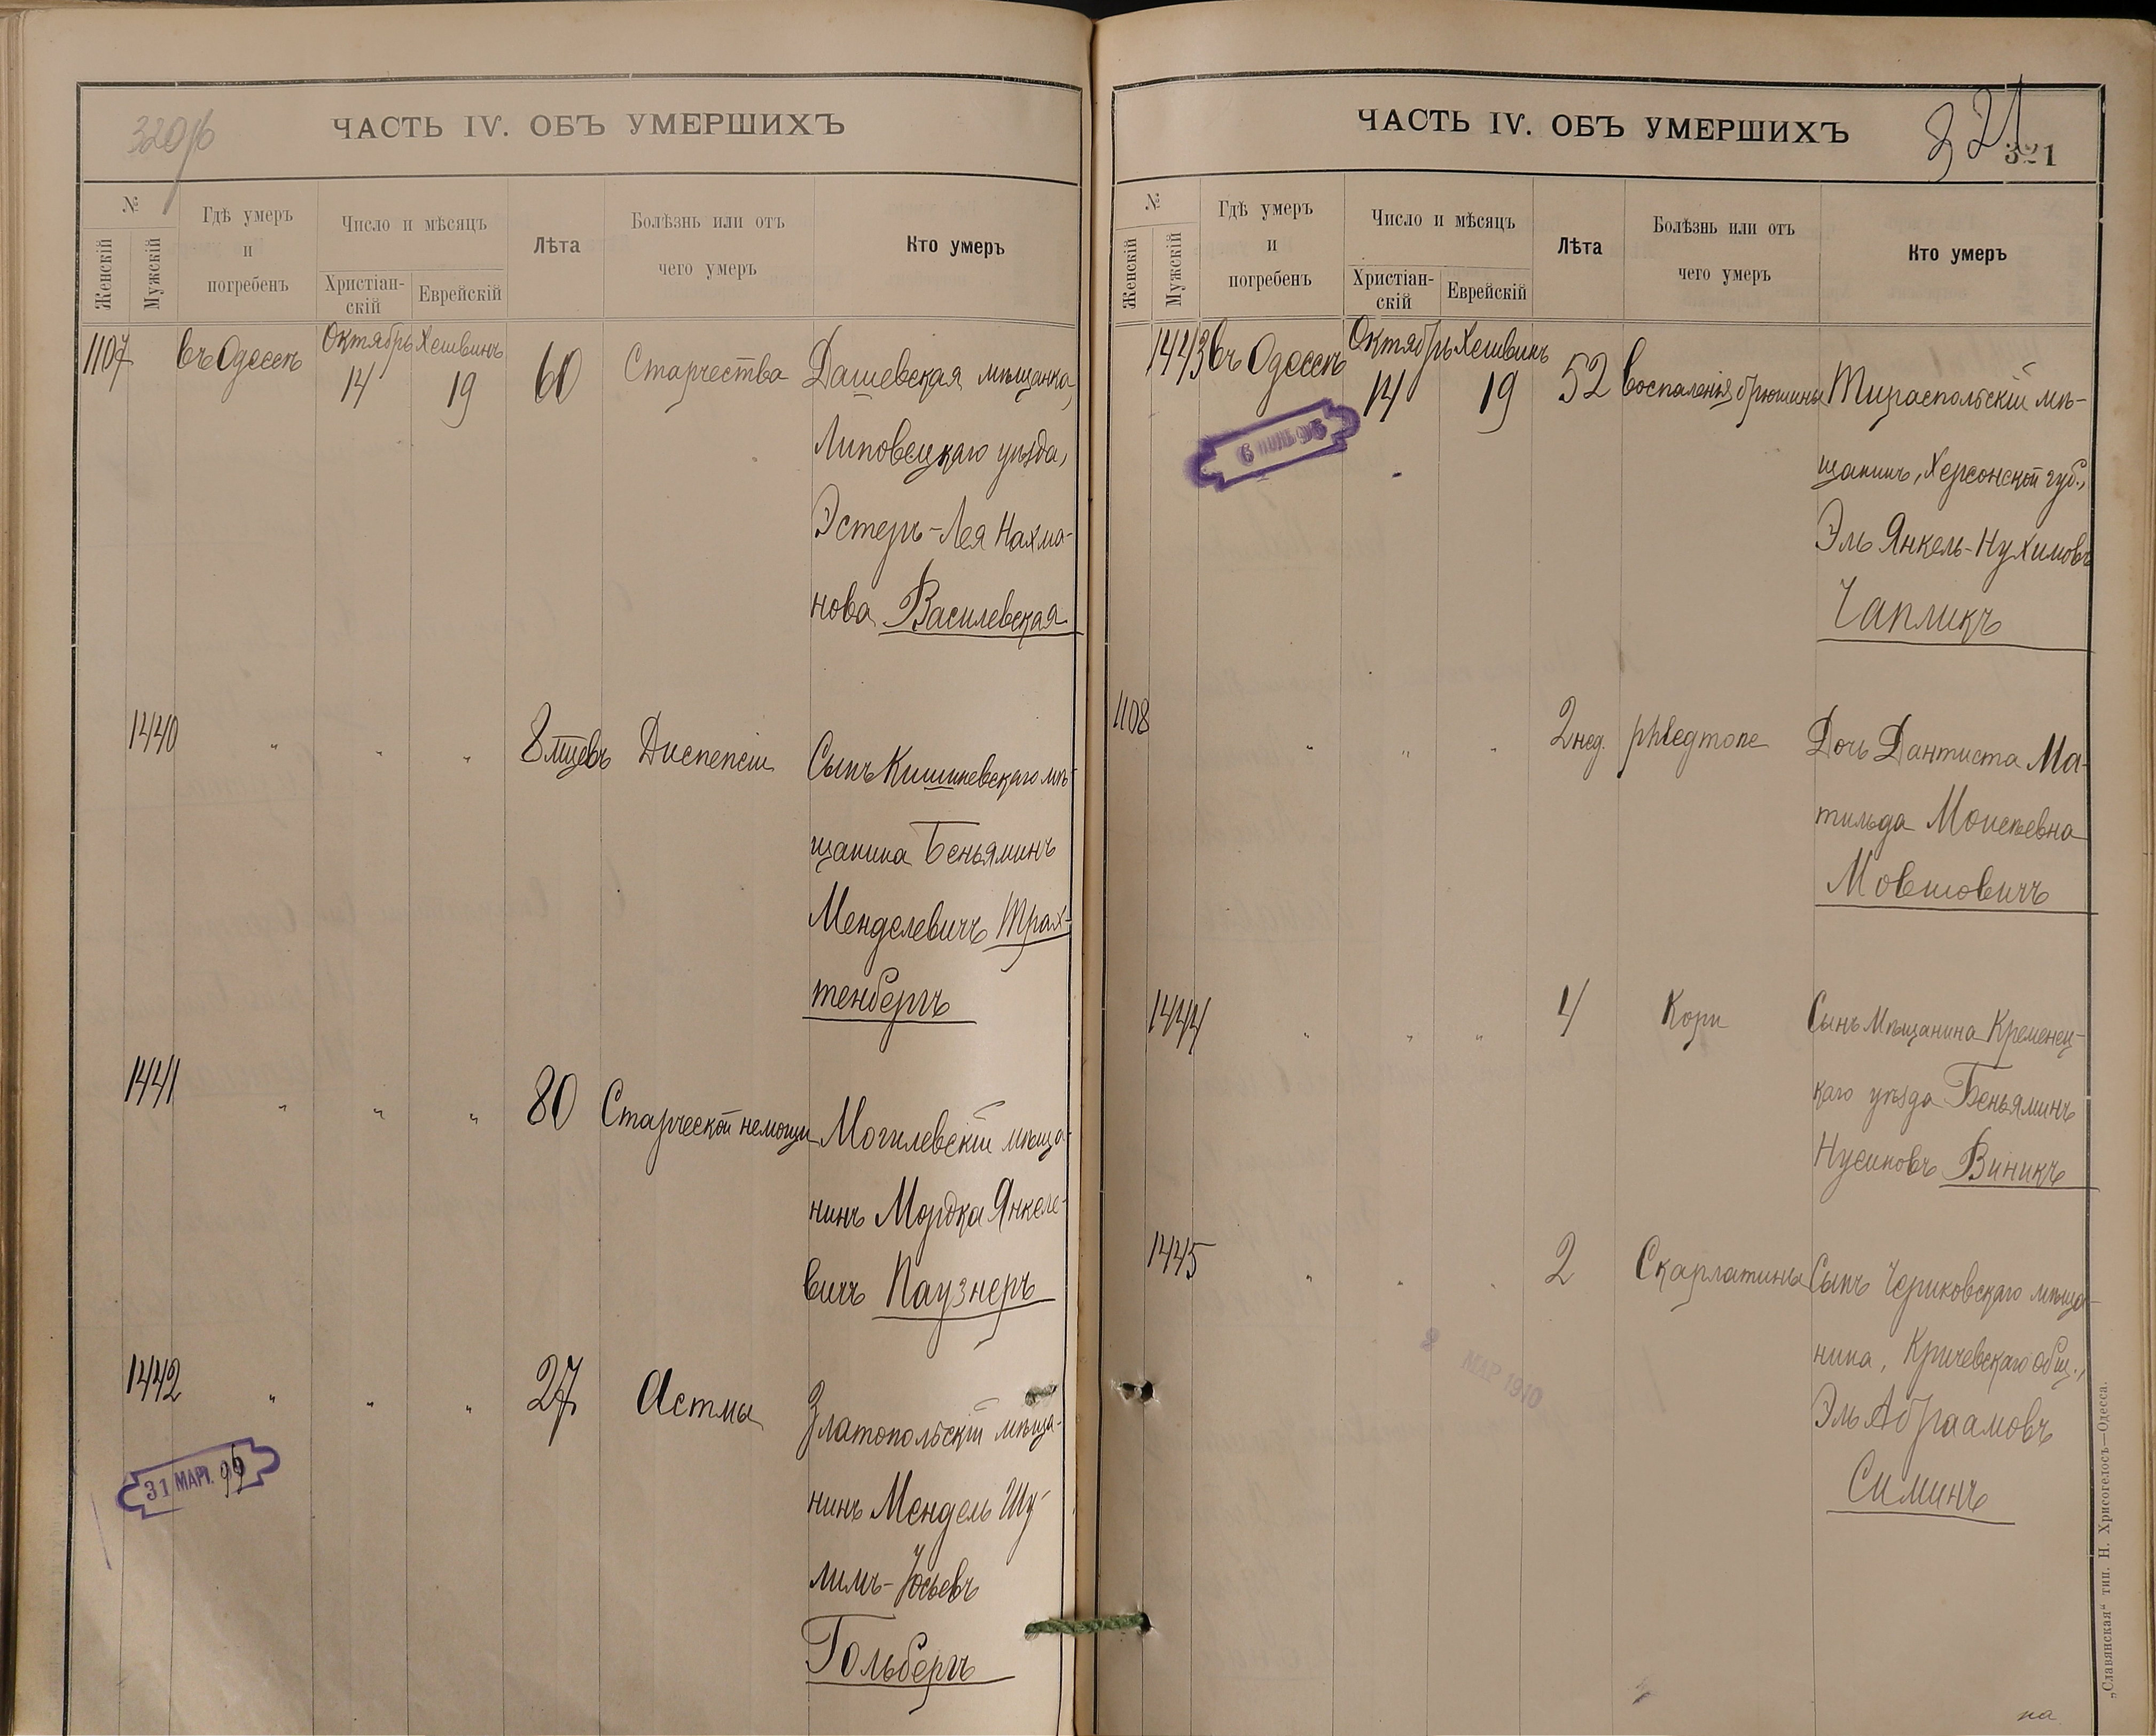 320об
ЧАСТЬ IV. ОБЪ УМЕРШИХЪ
№
Женскій
Мужскій
Гдѣ умеръ и погребенъ
Число и мѣсяцъ
Христіан-скій
Еврейскій
Лѣта
Болѣзнь или отъ чего умеръ
Кто умеръ
1107 въ Одессѣ Октябрь 14 Хешвинъ 19 60 Старчества Дашевская мѣщанка,
Липовецкаго уѣзда,
Эстеръ-Лея Нахма-
нова Василевская
1440 " " " 8 мцевъ Диспепсіи Сынъ Кишиневскаго мѣ-
щанина Беньяминъ
Менделевичъ Трах-
тенбергъ
1441 " " " 80 Старческой немощи Могилевскій мѣща-
нинъ Мордка Янкеле-
вичъ Паузнеръ
1442 " " " 27 Астмы Златопольскій мѣща-
нинъ Мендель Шу-
лимъ-Іосьевъ
Гольбергъ
31 МАР. 99
ЧАСТЬ IV. ОБЪ УМЕРШИХЪ
321
321
№
Женскій
Мужскій
Гдѣ умеръ и погребенъ
Число и мѣсяцъ
Христіан-скій
Еврейскій
Лѣта
Болѣзнь или отъ чего умеръ
Кто умеръ
1443 въ Одессѣ Октябрь 14 Хешвинъ 19 52 Воспаленія брюшины Тираспольскій мѣ-
щанинъ, Херсонской губ.,
Эль Янкель-Нухимовъ
Чапликъ
1108 " " " 2 нед. phlegmone Дочь Дантиста Ма-
тильда Моисѣевна
Мовшовичъ
1444 " " " 4 Кори Сынъ Мѣщанина Кременец-
каго уѣзда Беньяминъ
Нусиновъ Виникъ
1445 " " " 2 Скарлатины Сынъ Чериковскаго мѣща-
нина, Кричевскаго общ.,
Эль Абраамовъ
Симинъ
2 МАР 1910
„Славянская“ тип. Н. Хрисогелосъ—Одесса.
на